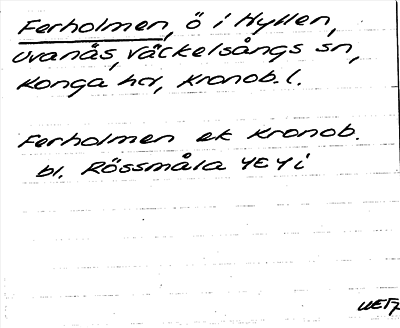 Ferholmen, ö i Hyllen,
Uvanäs, Väckelsångs sn,
Konga hd, Kronob. l.
Ferholmen ek Kronob.
bl. Rössmåla 4E4i